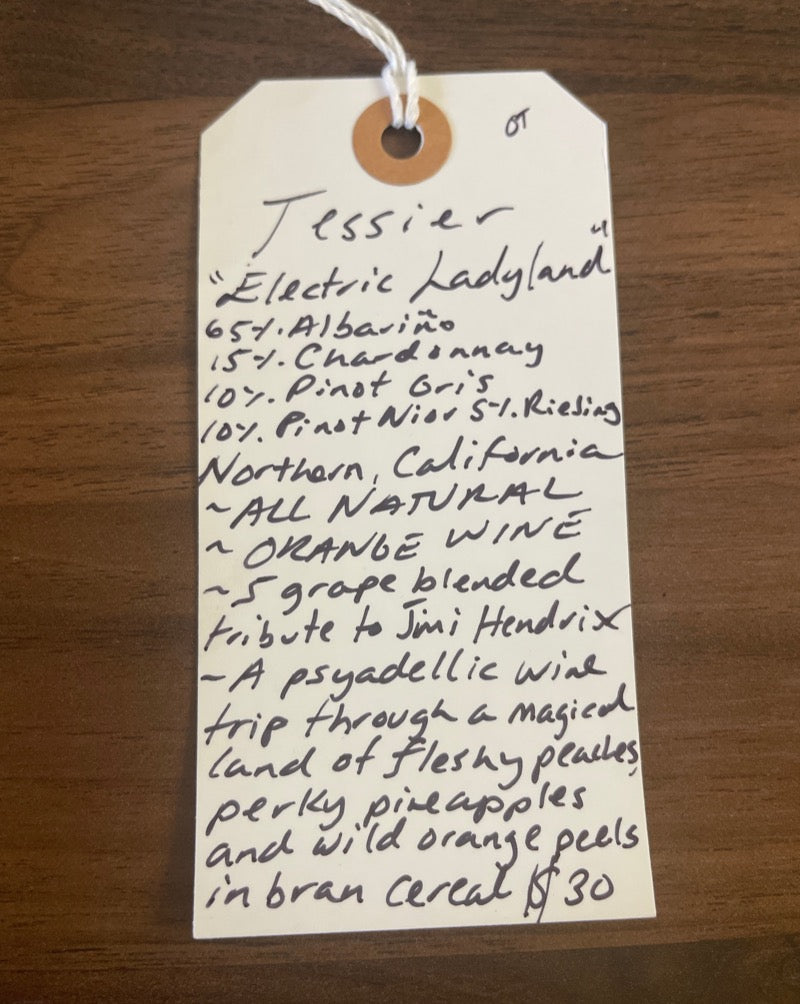 OT
Tessier
"Electric Ladyland"
65%. Albariño
15%. Chardonnay
10%. Pinot Gris
10%. Pinot Nior 5%. Riesling
Northern, California
~ALL NATURAL
~ ORANGE WINE
~5 grape blended
tribute to Jimi Hendrix
~A psyadellic wine
trip through a magical
land of fleshy peaches,
perky pineapples
and wild orange peels
in bran cereal $30